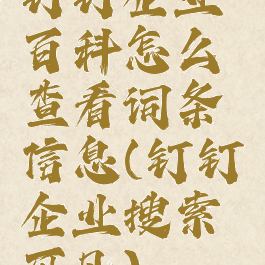 钉钉企业
百科怎么
查看词条
信息(钉钉
企业搜索